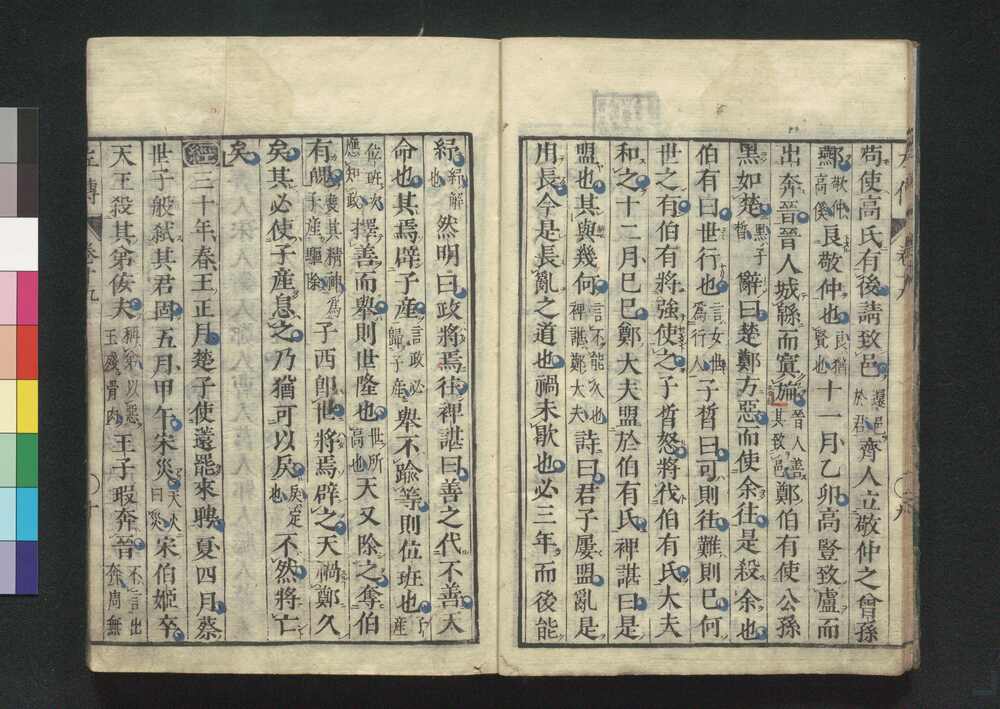 苟使高氏有後請致邑還邑於君齊人立敬仲之曾孫
酀敬仲高傒良敬仲也良猶賢也十一月乙卯高豎致盧而
出奔晉晉人城緜而寘旃晉人善其致邑鄭伯有使公孫
黑如楚黑子晳辭曰楚鄭方惡而使余往是殺余也
伯有曰世行也言女世爲行人子晳曰可則往難則已何
世之有伯有將強使之子晳怒將伐伯有氏大夫
和之十二月己巳鄭大夫盟於伯有氏裨諶曰是
盟也其與幾何言不能久也裨諶鄭大夫詩曰君子屢盟亂是
用長今是長亂之道也禍未歇也必三年而後能
紓紓解也然明曰政將焉往裨諶曰善之代不善天
命也其焉辟子產言政必歸子產舉不踰等則位班也子產
位班次應知政擇善而舉則世隆也世所高也天又除之奪伯
有魄喪其精神爲子產驅除子西卽世將焉辟之天禍鄭久
矣其必使子產息之乃猶可以戾戾定也不然將亡
矣
經三十年春王正月楚子使薳罷來聘夏四月蔡
世子般弒其君固五月甲午宋災天火曰災宋伯姬卒
天王殺其弟佞夫稱弟以惡王殘骨肉王子瑕奔晉不言出奔周無
左傳 卷十九